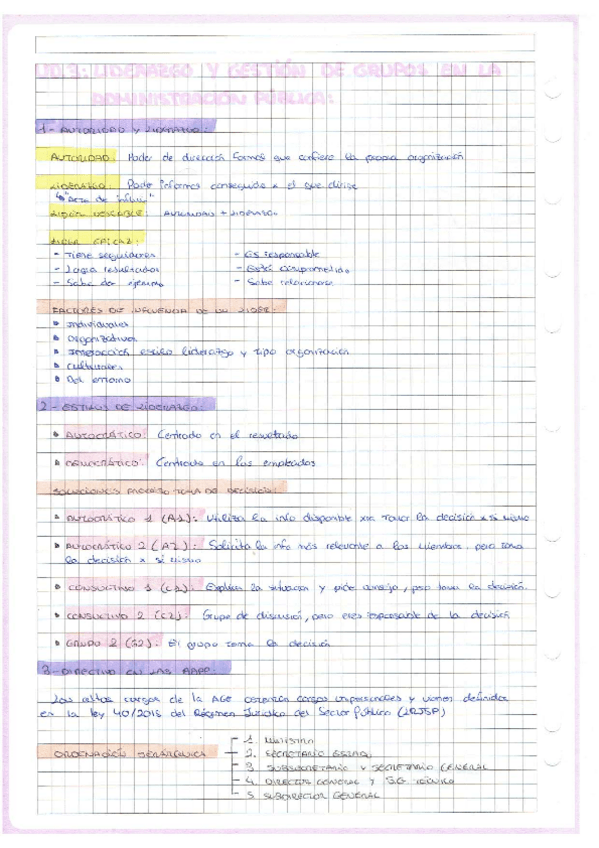 UD.3: LIDERAZGO Y GESTIÓN DE GRUPOS EN LA
ADMINISTRACIÓN PÚBLICA:
1- AUTORIDAD Y LIDERAZGO:
AUTORIDAD: Poder de dirección formal que confiere la propia organización
LIDERAZGO: Poder informal conseguido x el que dirige
"Arte de influir"
LIDER DESEABLE: AUTORIDAD + LIDERAZGO
LIDER EFICAZ:
- Tiene seguidores - Es responsable
- Logra resultados - Está comprometido
- Sabe dar ejemplo - Sabe relacionarse
FACTORES DE INFLUENCIA DE UN LIDER:
Individuales
Organizativos
Interacción estilo liderazgo y tipo organización
Culturales
Del entorno
2- ESTILOS DE LIDERAZGO:
AUTOCRÁTICO: Centrado en el resultado
DEMOCRÁTICO: Centrado en los empleados
SOLUCIONES PROCESO TOMA DE DECISIÓN:
AUTOCRÁTICO 1 (A1): Utiliza la info disponible xa tomar la decisión x sí mismo
AUTOCRÁTICO 2 (A2): Solicita la info más relevante a los miembros, pero toma
la decisión x sí mismo
CONSULTIVO 1 (C1): Explica la situación y pide consejo, pero toma la decisión.
CONSULTIVO 2 (C2): Grupo de discusión, pero eres responsable de la decisión
GRUPO 2 (G2): El grupo toma la decisión
3- DIRECTIVO EN LAS AAPP:
Los altos cargos de la AGE ostentan cargos unipersonales y vienen definidos
en la ley 40/2015 del Régimen Jurídico del Sector Público (LRJSP)
ORDENACIÓN JERÁRQUICA
1. MINISTRO
2. SECRETARIO ESTADO
3. SUBSECRETARIO Y SECRETARIO GENERAL
4. DIRECTOR GENERAL Y S.G. TÉCNICO
5. SUBDIRECTOR GENERAL